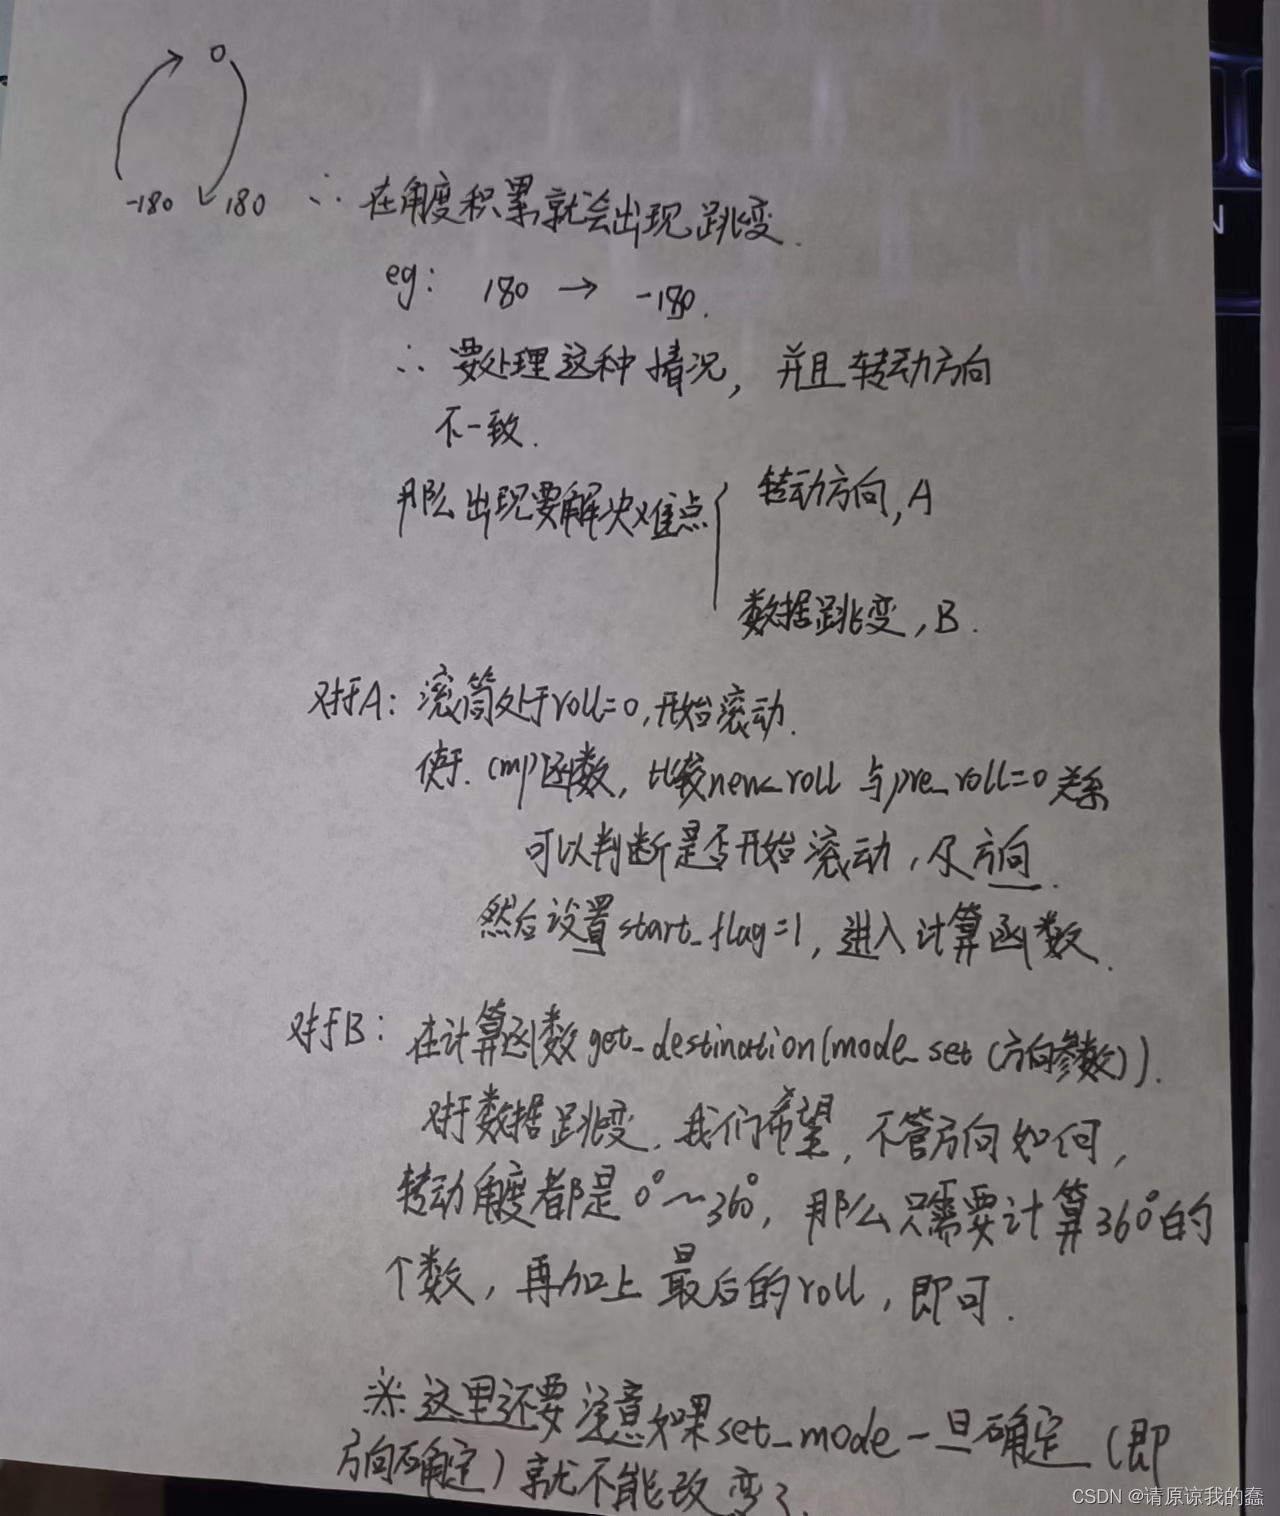 0
-180 180 ∴ 在角度积累就会出现跳变.
eg: 180 → -180.
∴ 要处理这种情况, 并且转动方向
不一致.
那么出现要解决难点{ 转动方向, A
数据跳变, B.
对于A: 滚筒处于roll=0, 开始滚动.
使于. cmp函数, 比较new_roll 与pre_roll=0关系
可以判断是否开始滚动, 及方向.
然后设置start_flag=1, 进入计算函数.
对于B: 在计算函数get_destination(mode_set(方向参数)).
对于数据跳变. 我们希望, 不管方向如何,
转动角度都是0°~360°, 那么只需要计算360°的
个数, 再加上最后的roll, 即可.
※ 这里还要注意如果set_mode一旦确定 (即
方向确定) 就不能改变了.
N
CSDN @请原谅我的蠢